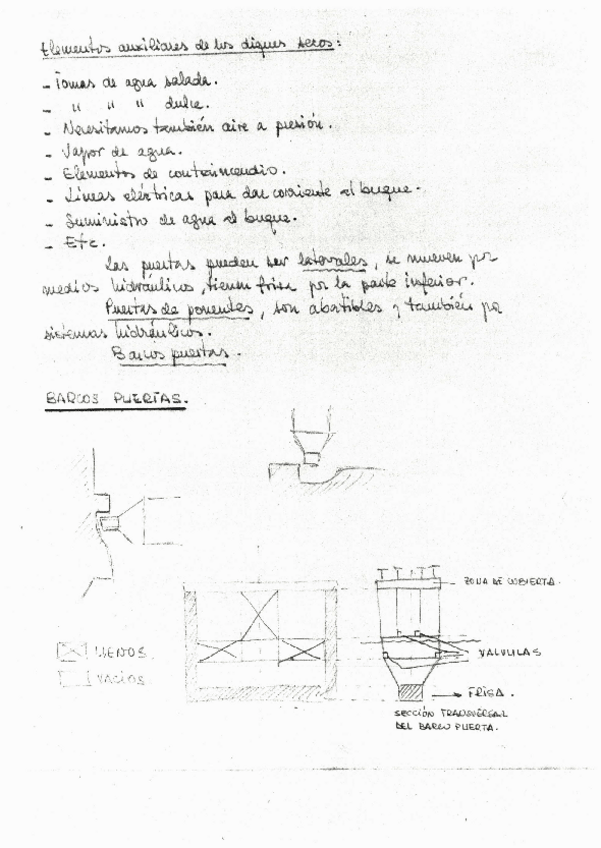 Elementos auxiliares de los diques secos:
- Tomas de agua salada.
- " " " dulce.
- Necesitamos también aire a presión.
- Vapor de agua.
- Elementos de contraincendio.
- Líneas eléctricas para dar corriente al buque.
- Suministro de agua al buque.
- Etc.
Las puertas pueden ser laterales, se mueven por
medios hidráulicos, tienen frisa por la parte inferior.
Puertas de ponentes, son abatibles y también por
sistemas hidráulicos.
Barcos puertas.
BARCOS PUERTAS.
ZONA DE CUBIERTA.
LLENOS
VACÍOS
VALVULAS
FRISA.
SECCIÓN TRANSVERSAL
DEL BARCO PUERTA.